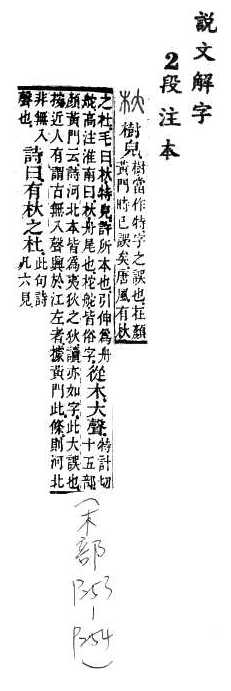 說文解字
2段注本
杕 樹皃 樹當作特字之誤也。在顏黃門時已誤矣唐風有杕
之杜。毛曰杕特皃許所本也引伸爲舟舵高注淮南曰杕舟尾也柁舵皆俗字。從木。大聲。特計切十五部
顏黃門云詩河北本皆爲夷狄之狄讀亦如字。此大誤也
按近人有謂古無入聲興於江左者。據黃門此條。則河北
非無入聲也。詩曰有杕之杜 此句詩凡六見
(木部 P253-P254)